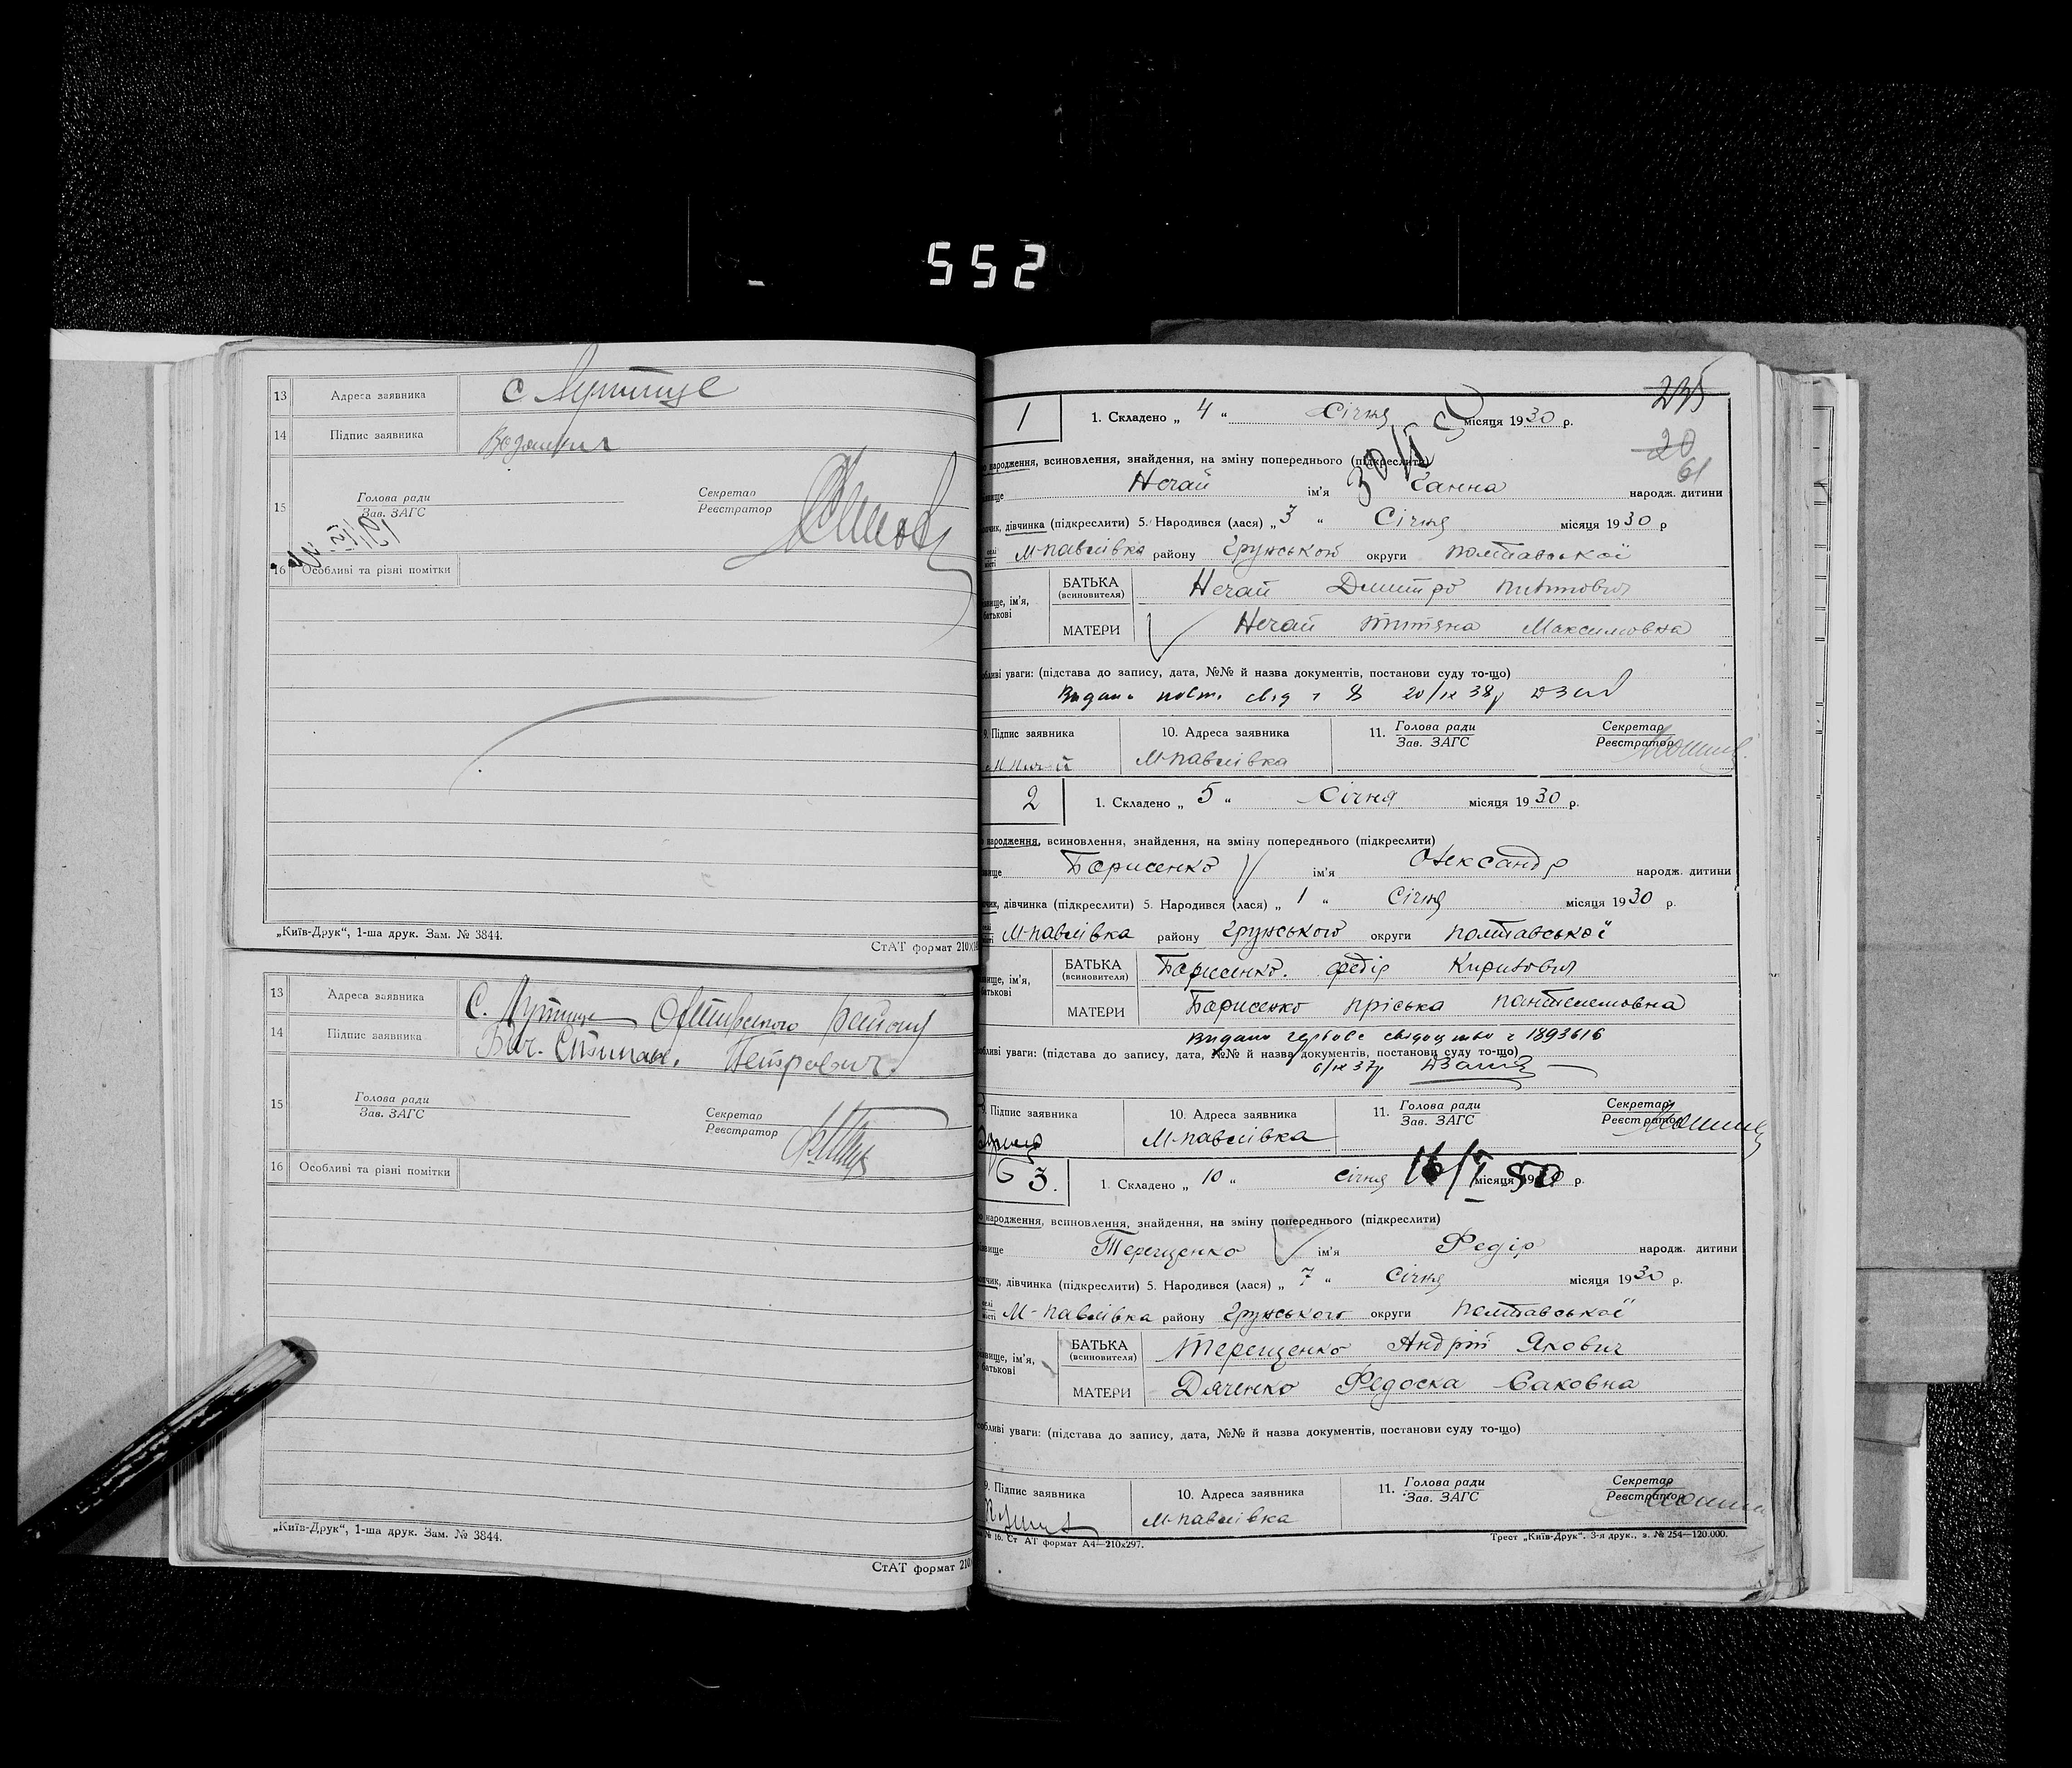 552
13 Адреса заявника С Лутище
14 Підпис заявника
15 Голова ради Секретар
Зав. ЗАГС Реєстратор
16 Особливі та різні помітки
„Київ-Друк“, 1-ша друк. Зам. № 3844.
СтАТ формат 210
13 Адреса заявника С. Лутище району
14 Підпис заявника Петрович
15 Голова ради Секретар
Зав. ЗАГС Реєстратор
16 Особливі та різні помітки
„Київ-Друк“, 1-ша друк. Зам. № 3844.
СтАТ формат 210
235
20
61
1 1. Складено „ 4 “ Січня місяця 1930 р.
народження, всиновлення, знайдення, на зміну попереднього (підкреслити)
Нечай ім'я Ганна народж. дитини
дівчинка (підкреслити) 5. Народився (лася) „ 3 “ Січня місяця 1930 р
М-павлівка району Грунського округи полтавської
БАТЬКА (всиновителя) Нечай Дмитро
МАТЕРИ Нечай Максимовна
уваги: (підстава до запису, дата, №№ й назва документів, постанови суду то-що)
20/IX 38р
9. Підпис заявника 10. Адреса заявника 11. Голова ради Секретар
Зав. ЗАГС Реєстратор
М-павлівка
2 1. Складено „ 5 “ Січня місяця 1930 р.
народження, всиновлення, знайдення, на зміну попереднього (підкреслити)
Борисенко ім'я Олександр народж. дитини
дівчинка (підкреслити) 5. Народився (лася) „ 1 “ Січня місяця 1930 р.
М-павлівка району Грунського округи полтавської
БАТЬКА (всиновителя) Борисенко федір Кирилович
МАТЕРИ Борисенко пріська пантелемовна
Видано гербове свідоцтво 1893616
уваги: (підстава до запису, дата, №№ й назва документів, постанови суду то-що)
6/IX 37р
9. Підпис заявника 10. Адреса заявника 11. Голова ради Секретар
Зав. ЗАГС Реєстратор
М-павлівка
3. 1. Складено „ 10 “ січня місяця 19 р.
16/I 50
народження, всиновлення, знайдення, на зміну попереднього (підкреслити)
Терещенко ім'я Федір народж. дитини
дівчинка (підкреслити) 5. Народився (лася) „ 7 “ Січня місяця 1930 р.
М-павлівка району Грунського округи полтавської
БАТЬКА (всиновителя) Терещенко Андрій Якович
МАТЕРИ Дяченко Федоска Саковна
уваги: (підстава до запису, дата, №№ й назва документів, постанови суду то-що)
9. Підпис заявника 10. Адреса заявника 11. Голова ради Секретар
Зав. ЗАГС Реєстратор
М-павлівка
№ 16. Ст АТ формат А4—210х297.
Трест „Київ-Друк“. 3-я друк., з. № 254—120.000.